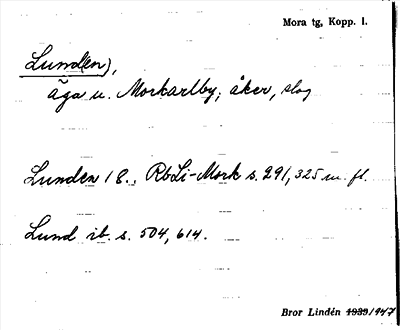 Mora tg, Kopp. l.
Lund(en),
äga u. Morkarlby; åker, slog
Lunden 18.. RbLi-Mork s. 291, 325 m. fl.
Lund ib. s. 504, 614.
Bror Lindén 1939/1947